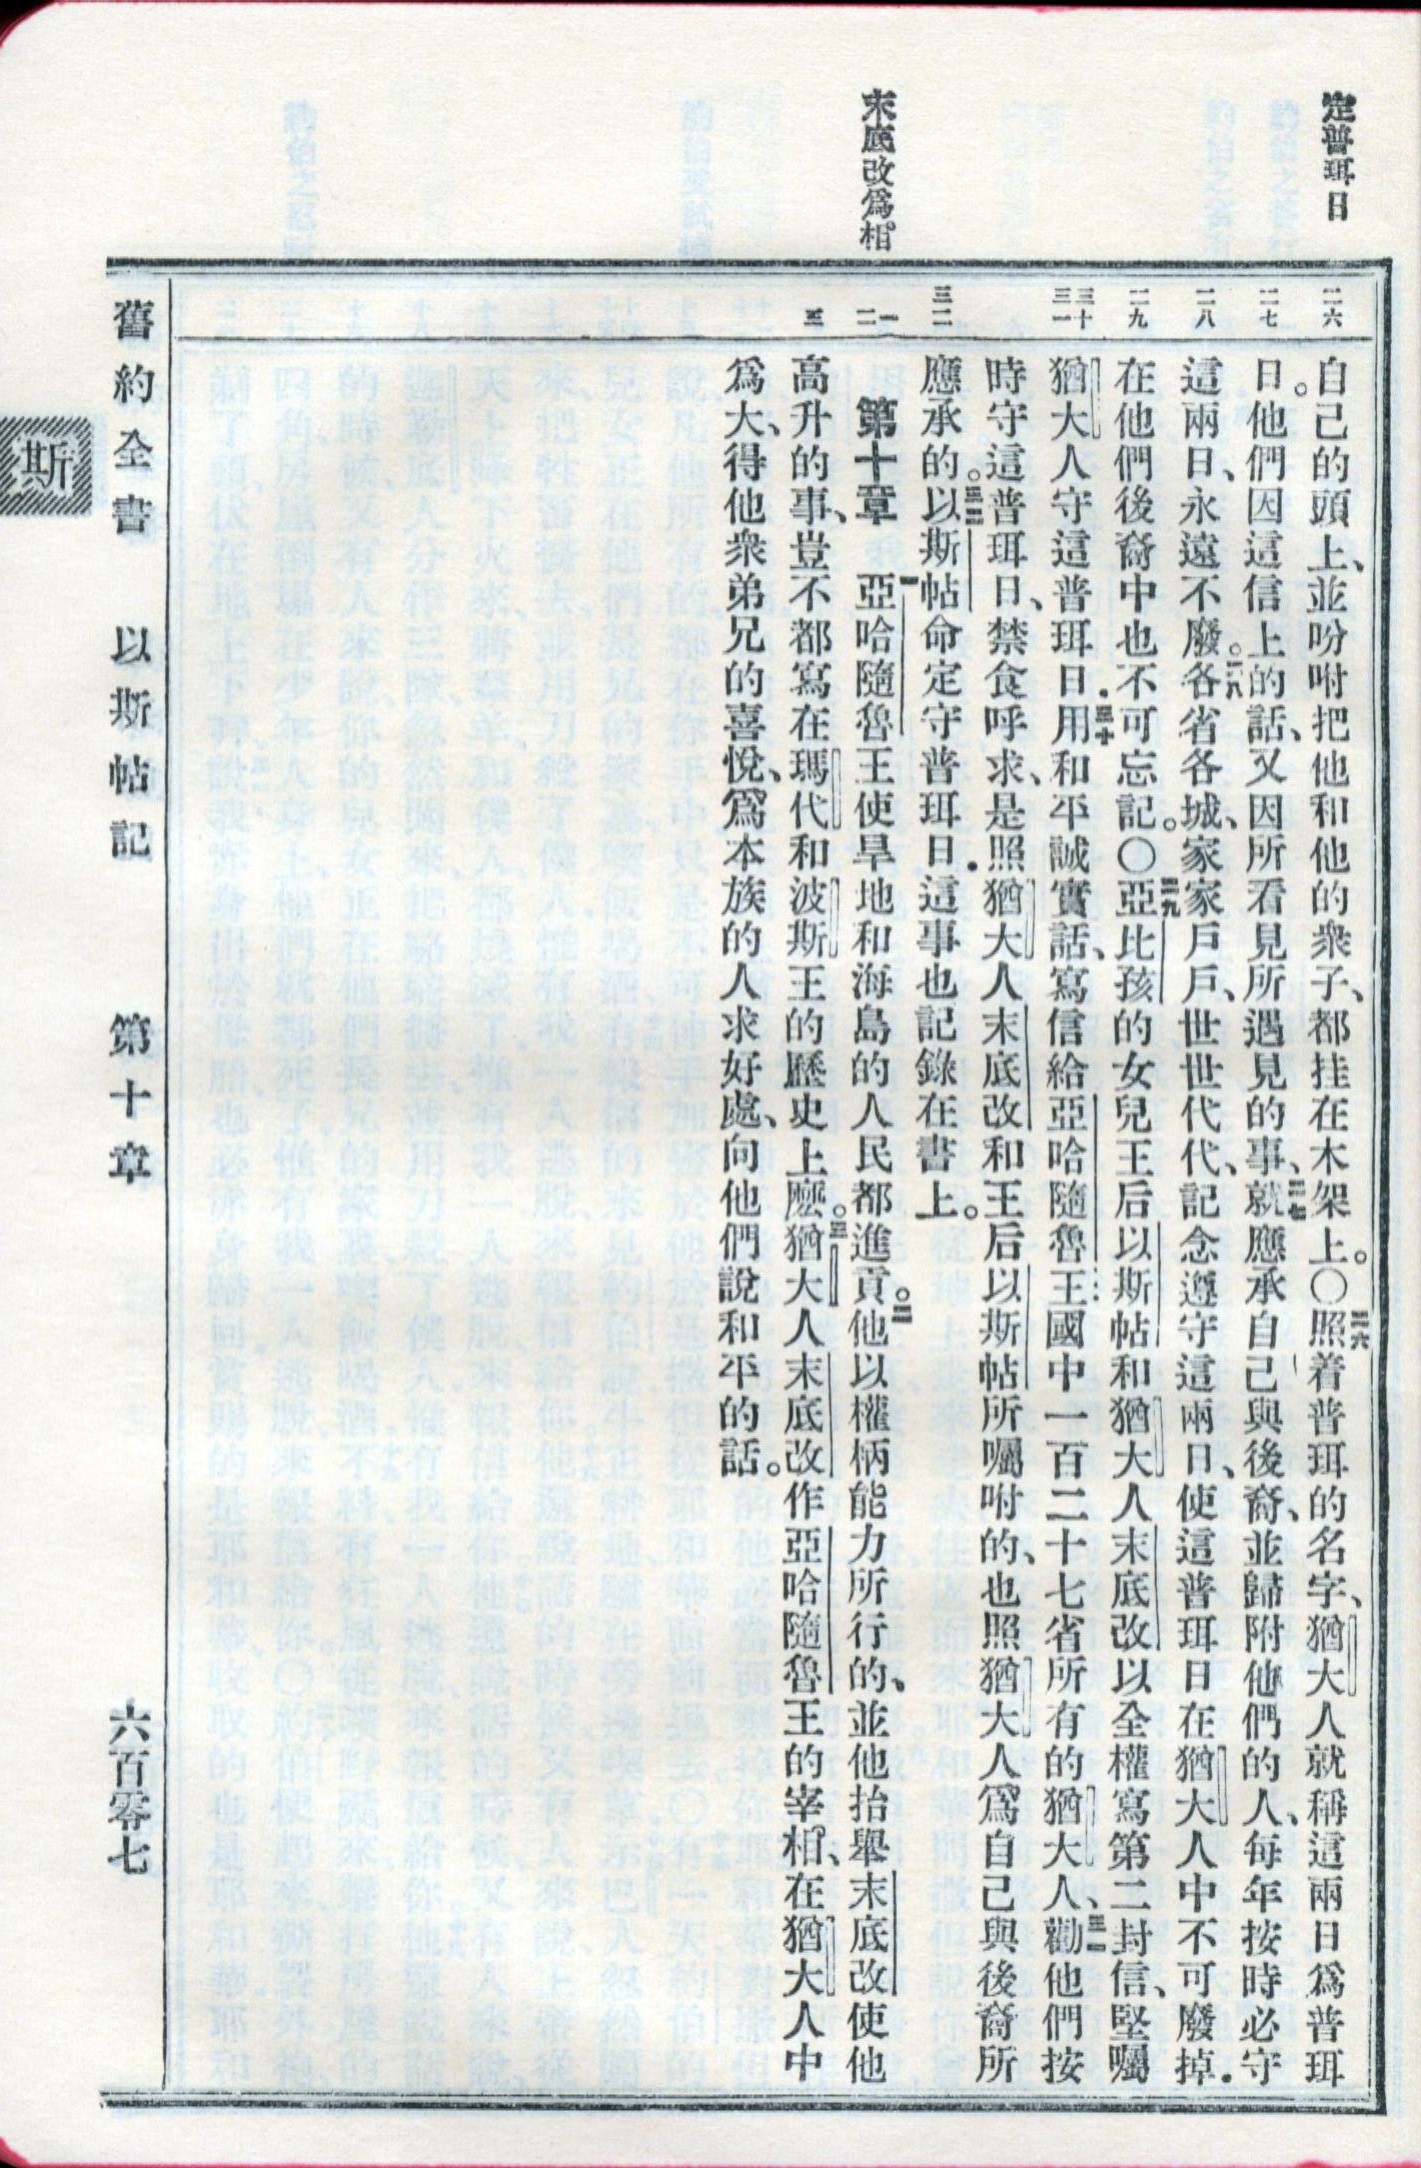 定普珥日
末底改爲相。
二六
二七
二八
二九
三十
三一
三二
一
二
三
自己的頭上、並吩咐把他和他的衆子、都挂在木架上。○二六照着普珥的名字、猶大人就稱這兩日爲普珥
日。他們因這信上的話、又因所看見所遇見的事、二七就應承自己與後裔、並歸附他們的人、每年按時必守
這兩日、永遠不廢。二八各省各城、家家戶戶、世世代代、記念遵守這兩日、使這普珥日在猶大人中不可廢掉．
在他們後裔中也不可忘記。○二九亞比孩的女兒王后以斯帖和猶大人末底改以全權寫第二封信、堅囑
猶大人守這普珥日．三十用和平誠實話、寫信給亞哈隨魯王國中一百二十七省所有的猶大人、三一勸他們按
時守這普珥日、禁食呼求、是照猶大人末底改和王后以斯帖所囑咐的、也照猶大人爲自己與後裔所
應承的。三二以斯帖命定守普珥日．這事也記錄在書上。
第十章　一亞哈隨魯王使旱地和海島的人民都進貢。二他以權柄能力所行的、並他抬舉末底改使他
高升的事、豈不都寫在瑪代和波斯王的歷史上麼。三猶大人末底改作亞哈隨魯王的宰相、在猶大人中
爲大、得他衆弟兄的喜悅、爲本族的人求好處、向他們說和平的話。
舊約全書　以斯帖記　第十章　六百零七
斯